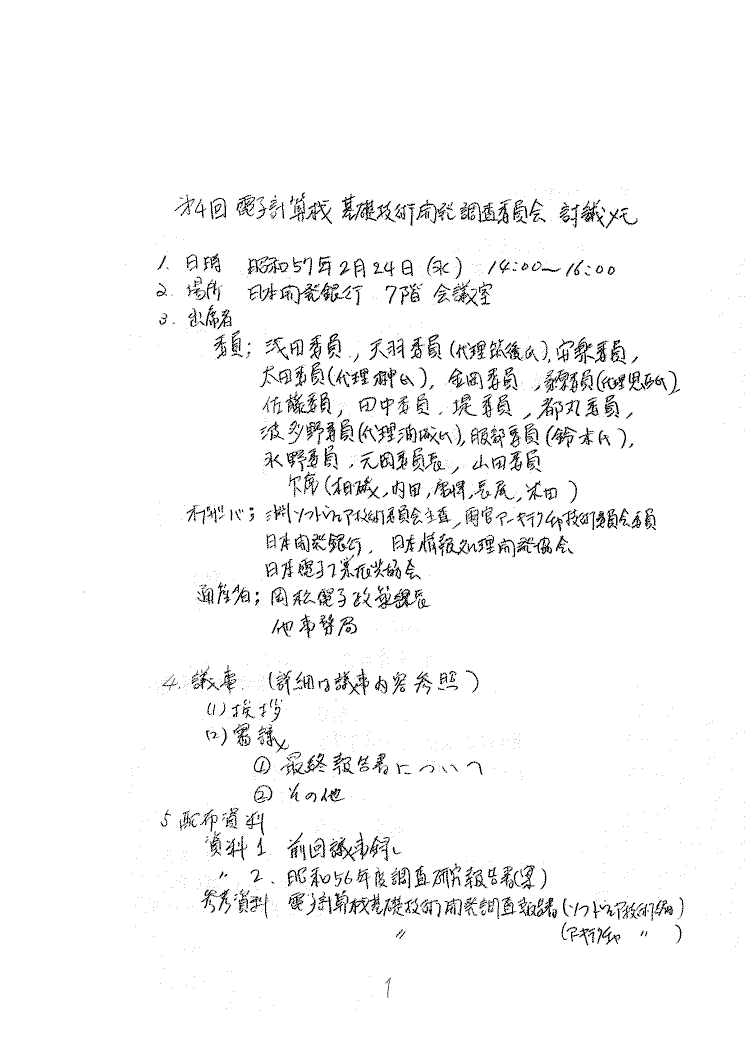 第4回 電子計算機 基礎技術開発調査委員会 討議メモ
1. 日時 昭和57年2月24日(水) 14:00〜16:00
2. 場所 日本開発銀行 7階 会議室
3. 出席者
委員; 浅田委員, 天羽委員(代理筑後氏), 安楽委員,
太田委員(代理 氏), 金岡委員, 委員(代理 氏)
佐藤委員, 田中委員, 堤委員, 都丸委員,
波多野委員(代理浦城氏), 服部委員(鈴木氏),
水野委員, 元岡委員長, 山田委員
欠席(相磯, 内田, , , 米田)
オブザーバ; 渕ソフトウェア技術委員会主査, 雨宮アーキテクチャ技術委員会委員
日本開発銀行, 日本情報処理開発協会
日本電子工業振興協会
通産省; 岡松電子政策課長
他事務局
4. 議事 (詳細は議事内容参照)
(1) 挨拶
(2) 審議
① 最終報告書について
② その他
5 配布資料
資料 1 前回議事録
〃 2. 昭和56年度調査研究報告書(案)
参考資料 電子計算機基礎技術開発調査報告書(ソフトウェア技術編)
〃 (アーキテクチャ 〃 )
1